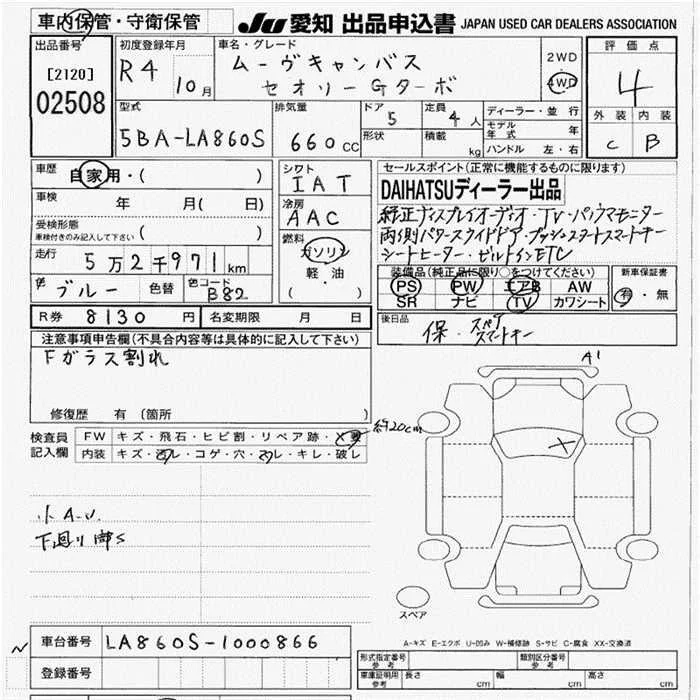 車内保管・守衛保管 JU 愛知 出品申込書 JAPAN USED CAR DEALERS ASSOCIATION
出品番号 初度登録年月 車名・グレード 評価点
[2120] R4 10月 ムーヴキャンバス 2WD
02508 セオリーGターボ 4WD 4
型式 排気量 ドア 定員 ディーラー・並行 外装 内装
5BA-LA860S 660cc 5 4人 モデル年式 年 C B
形状 積載 kg ハンドル 左・右
車歴 自家用・( ) シフト セールスポイント(正常に機能するものに限ります)
IAT DAIHATSUディーラー出品
車検 年 月( 日) 冷房 純正ディスプレイオーディオ・TV・パノラマモニター
受検形態 AAC 両側パワースライドドア・プッシュスタートスマートキー
車検付きのみ記入して下さい ( ) 燃料 シートヒーター・ビルトインETC
走行 5万2千971km ガソリン 装備品(純正品に限り○をつけてください) 新車保証書
軽油 PS PW エアB AW 有・無
色 ブルー 色替 色コード B82 ( ) SR ナビ TV カワシート
R券 8130円 名変期限 月 日 後日品 保・スペアスマートキー
注意事項申告欄(不具合内容等は具体的に記入して下さい)
Fガラス割れ A1
修復歴 有(箇所 )
検査員 FW キズ・飛石・ヒビ割・リペア跡・X要 約20cm X
記入欄 内装 キズ・汚レ・コゲ・穴・スレ・キレ・破レ
小A.U.
下廻り サビ
スペア
A-キズ E-エクボ U-凹み W-補修跡 S-サビ C-腐食 XX-交換済
車台番号 LA860S-1000866
登録番号 形式指定番号 参考 類別区分番号 参考
車庫証明用 参考 長さ cm 幅 cm 高さ cm